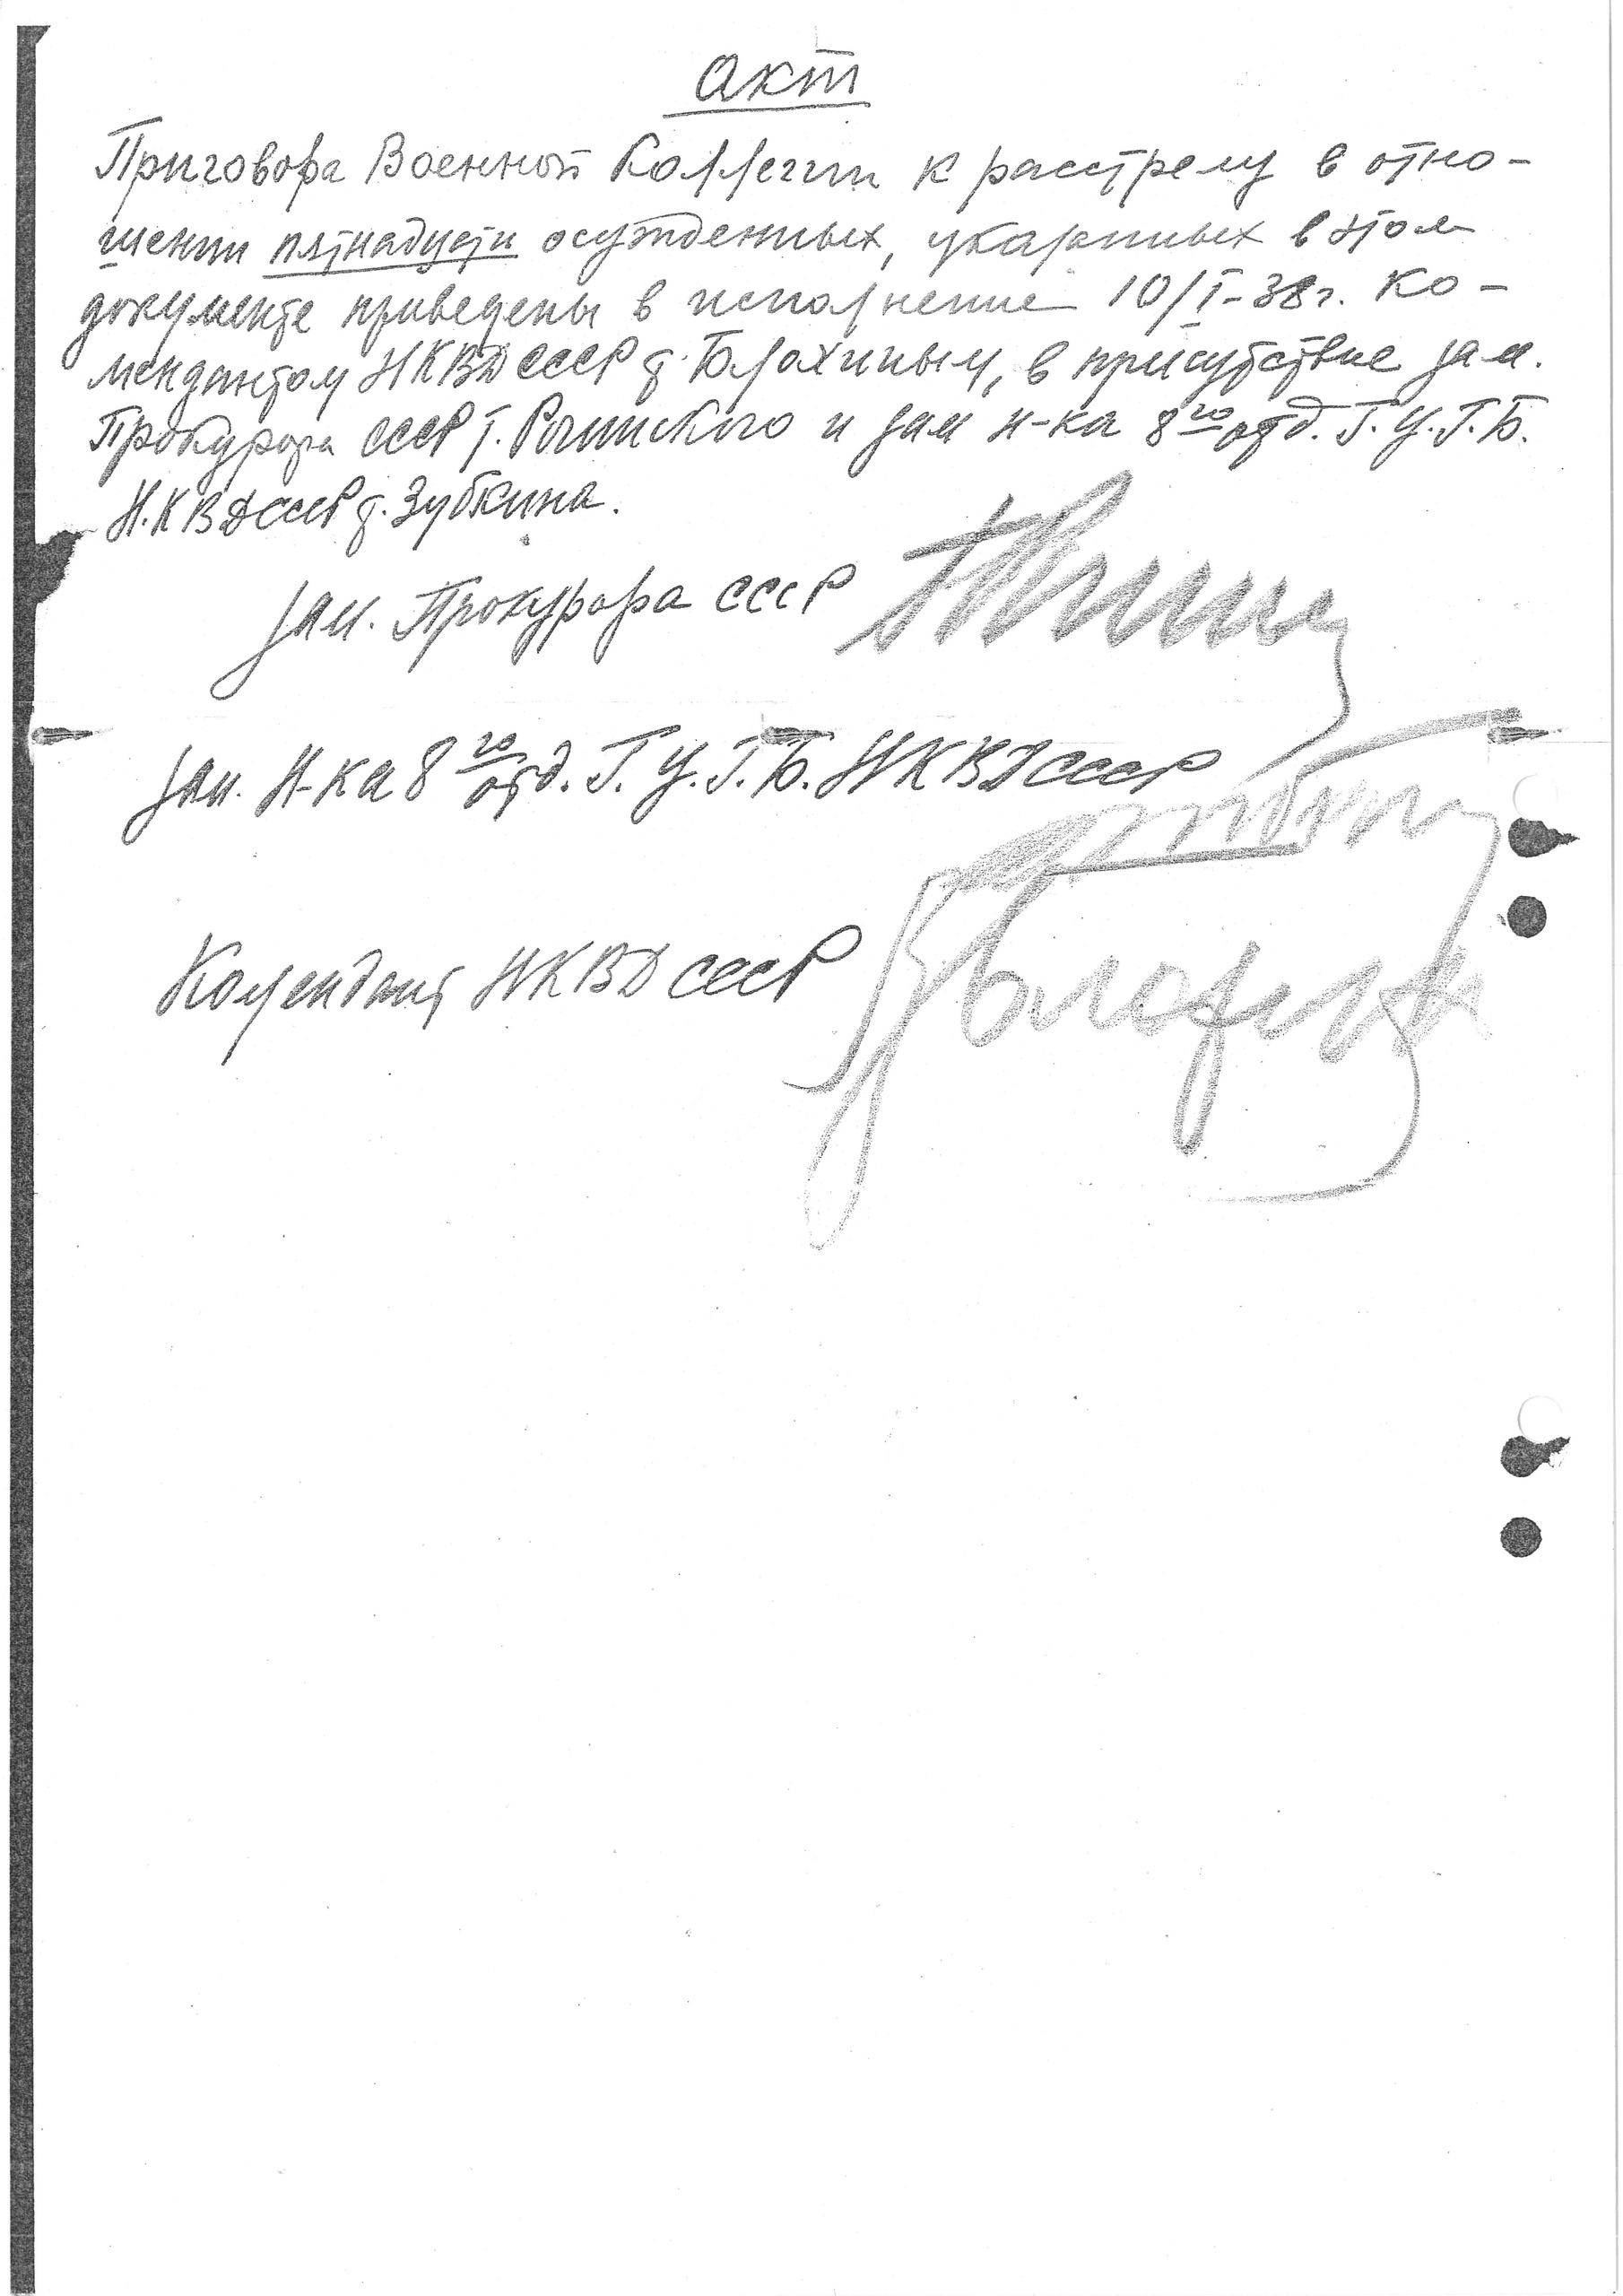 Акт
Приговора Военной Коллегии к расстрелу в отно-
шении пятнадцати осужденных, указанных в этом
документе приведены в исполнение 10/I-38г. Ко-
мендантом НКВД СССР т. Блохиным, в присутствие зам.
Прокурора СССР т. Рогинского и зам н-ка 8го отд. Г.У.Г.Б.
Н.КВД СССР т. Зубкина.
Зам. Прокурора СССР
Зам. Н-ка 8го отд. Г.У.Г.Б. НКВД СССР
Комендант НКВД СССР